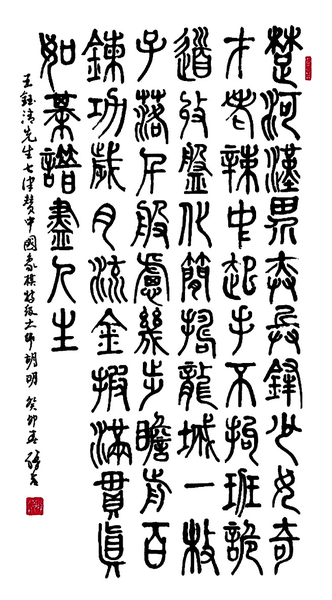 楚河漢界夾兵鋒少女奇
才老辣中起手不拘班詭
道收盤化簡搗龍城一枚
子落千般慮幾步瞻前百
鍊功歲月流金報滿貫真
如棊譜盡人生
王鈺清先生七律贊中國象棋特級大師胡明 癸卯春